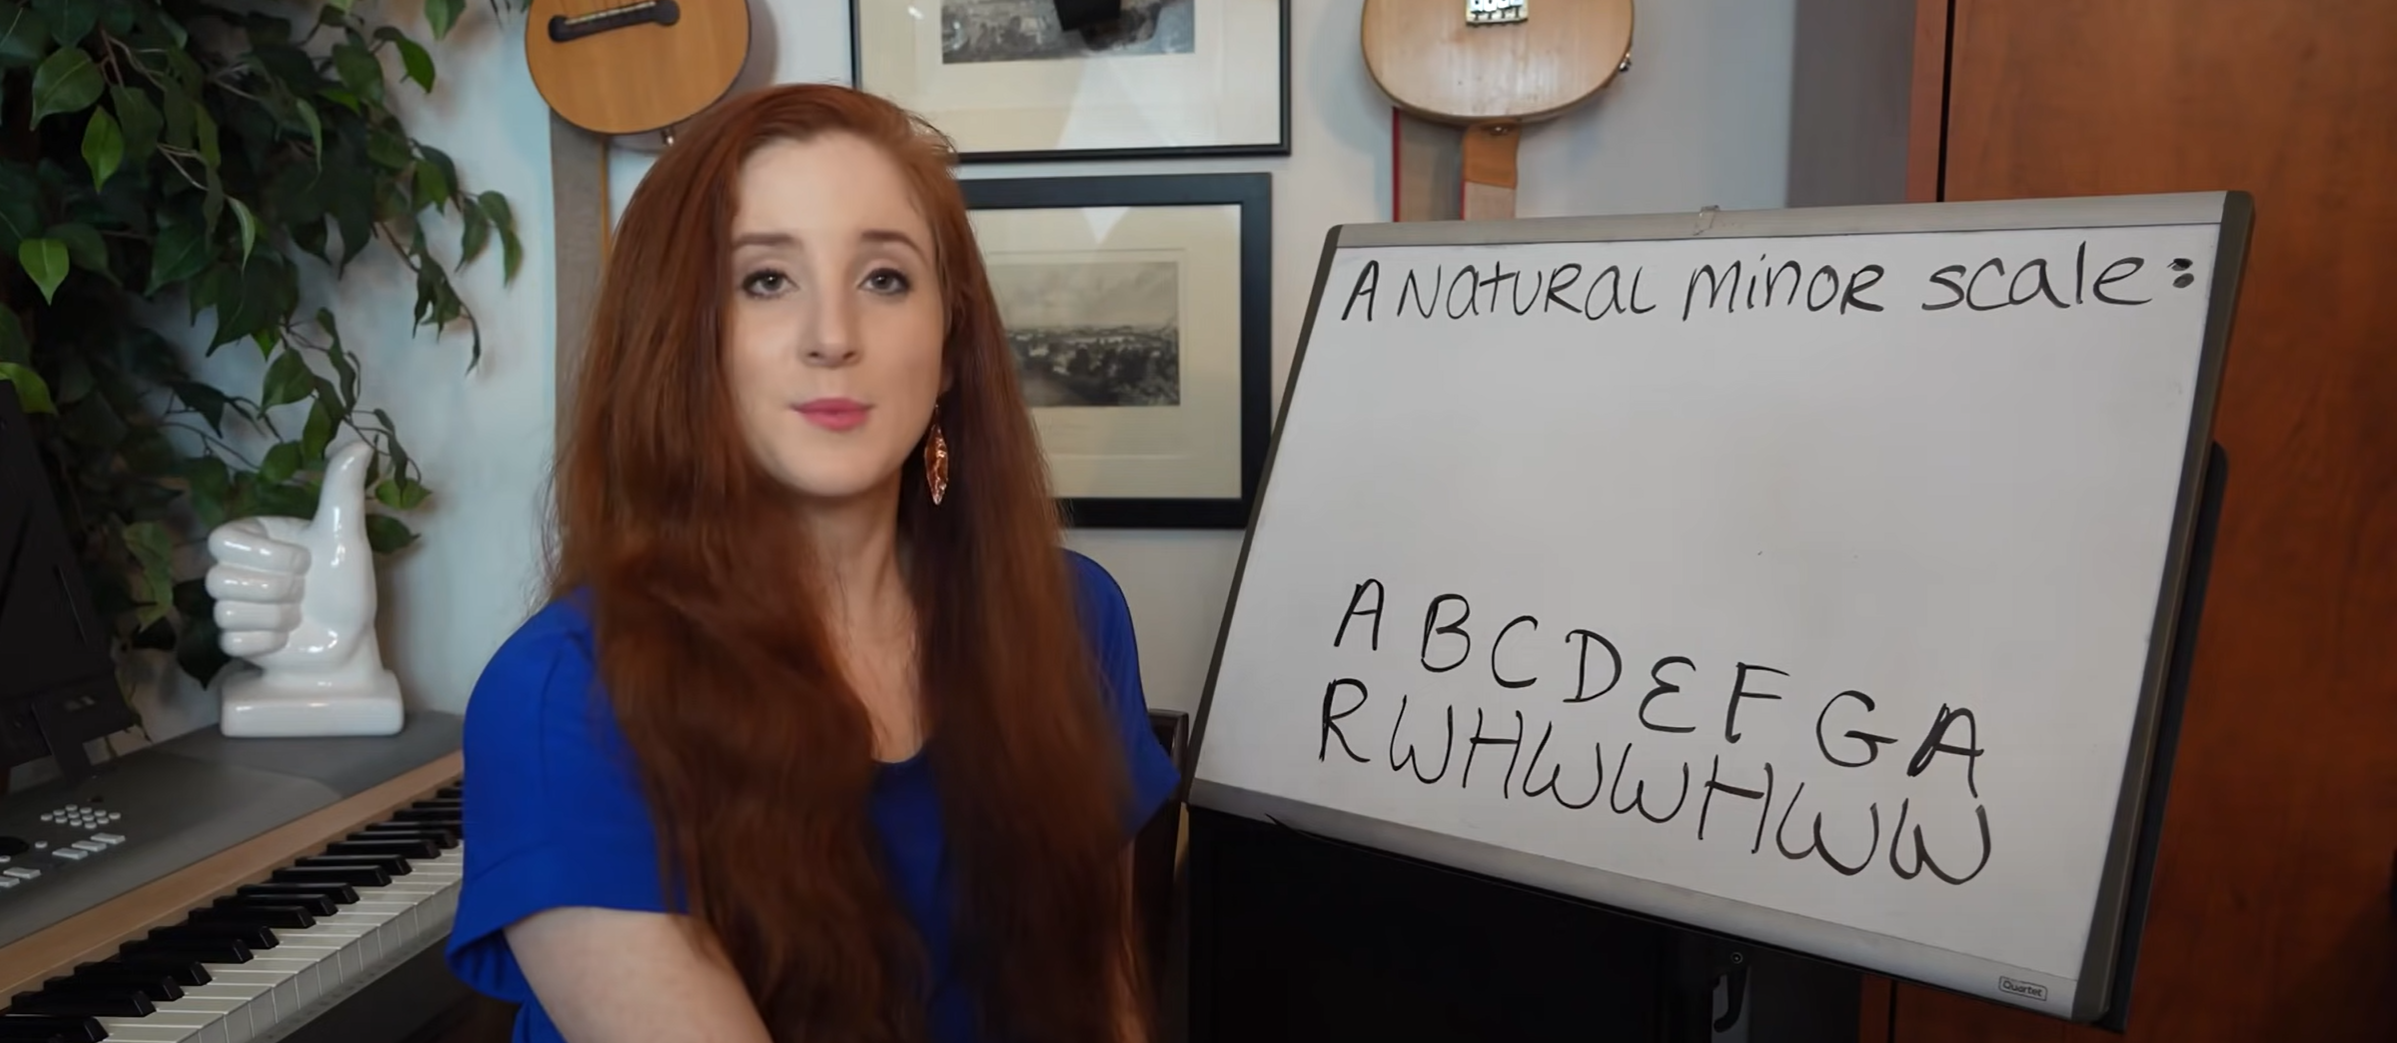 A Natural minor scale:
A B C D E F G A
R W H W W H W W
Quartet